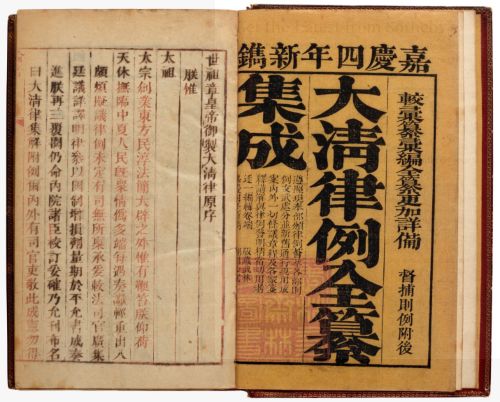 嘉慶四年新鐫
較彙纂彙編全纂更加詳備
督捕則例附後
大清律例全纂
集成
世祖章皇帝御製大清律原序
朕惟
太祖
太宗創業東方民淳法簡大辟之外惟有鞭笞朕仰荷
天休撫臨中夏人民既衆情偽多端每遇奏讞輕重出入
頗煩擬議律例未定有司無所稟承爰敕法司官廣集
廷議詳譯明律參以國制增損劑量期於平允書成奏
進朕再三覆閱仍命內院諸臣校訂妥確乃允刊布名
曰大清律集解附例爾內外有司官吏敬此成憲勿得